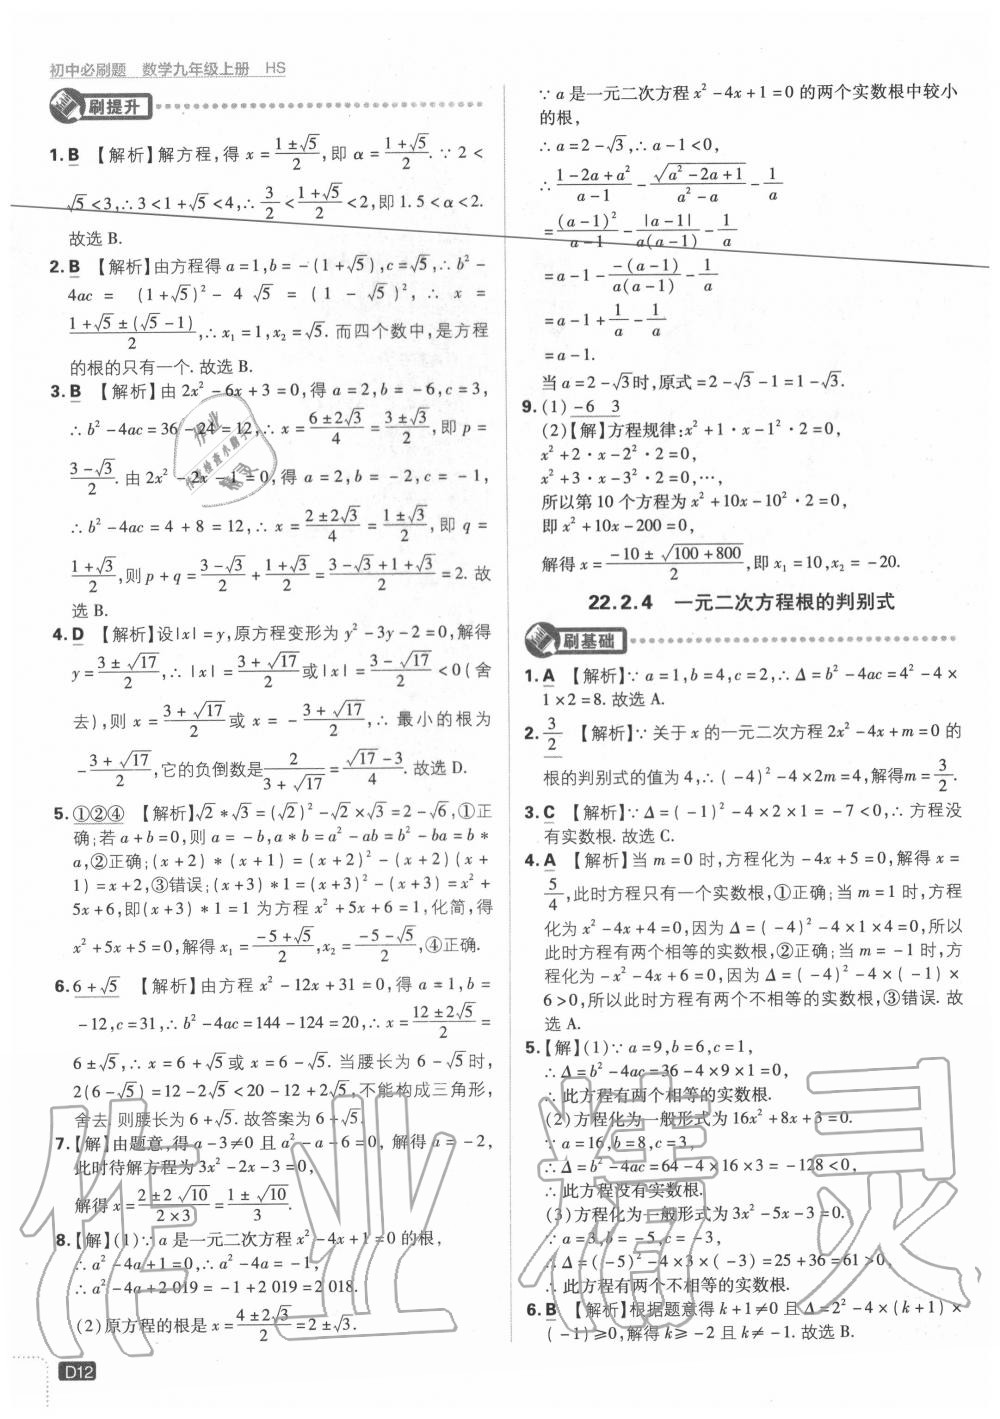 初中必刷题 数学九年级上册 HS
刷提升
1. B 【解析】解方程,得 x = (1±√5)/2, 即 α = (1+√5)/2. ∵ 2 <
√5 < 3, ∴ 3 < 1+√5 < 4, ∴ 3/2 < (1+√5)/2 < 2, 即 1.5 < α < 2.
故选 B.
2. B 【解析】由方程得 a = 1, b = -(1+√5), c = √5, ∴ b² -
4ac = (1+√5)² - 4√5 = (1 - √5)², ∴ x =
(1+√5±(√5-1))/2, ∴ x₁ = 1, x₂ = √5. 而四个数中,是方程
的根的只有一个. 故选 B.
3. B 【解析】由 2x² - 6x + 3 = 0, 得 a = 2, b = -6, c = 3,
∴ b² - 4ac = 36 - 24 = 12, ∴ x = (6±2√3)/4 = (3±√3)/2, 即 p =
(3-√3)/2. 由 2x² - 2x - 1 = 0, 得 a = 2, b = -2, c = -1,
∴ b² - 4ac = 4 + 8 = 12, ∴ x = (2±2√3)/4 = (1±√3)/2, 即 q =
(1+√3)/2, 则 p + q = (3-√3)/2 + (1+√3)/2 = (3-√3+1+√3)/2 = 2. 故
选 B.
4. D 【解析】设|x| = y, 原方程变形为 y² - 3y - 2 = 0, 解得
y = (3±√17)/2, ∴ |x| = (3+√17)/2 或 |x| = (3-√17)/2 < 0 (舍
去), 则 x = (3+√17)/2 或 x = -(3+√17)/2, ∴ 最小的根为
-(3+√17)/2, 它的负倒数是 2/(3+√17) = (√17-3)/4. 故选 D.
5. ①②④ 【解析】√2 * √3 = (√2)² - √2×√3 = 2 - √6, ①正
确;若 a + b = 0, 则 a = -b, a * b = a² - ab = b² - ba = b *
a, ②正确;(x+2) * (x+1) = (x+2)² - (x+2)(x+
1) = x + 2, ③错误;(x+3) * 1 = (x+3)² - (x+3) = x² +
5x + 6, 即(x+3) * 1 = 1 为方程 x² + 5x + 6 = 1, 化简,得
x² + 5x + 5 = 0, 解得 x₁ = (-5+√5)/2, x₂ = (-5-√5)/2, ④正确.
6. 6 + √5 【解析】由方程 x² - 12x + 31 = 0, 得 a = 1, b =
-12, c = 31, ∴ b² - 4ac = 144 - 124 = 20, ∴ x = (12±2√5)/2 =
6±√5, ∴ x = 6 + √5 或 x = 6 - √5. 当腰长为 6 - √5 时,
2(6-√5) = 12 - 2√5 < 20 - 12 + 2√5, 不能构成三角形,
舍去, 则腰长为 6 + √5. 故答案为 6 + √5.
7. 【解】由题意,得 a - 3 ≠ 0 且 a² - a - 6 = 0, 解得 a = -2,
此时待解方程为 3x² - 2x - 3 = 0,
解得 x = (2±2√10)/(2×3) = (1±√10)/3.
8. 【解】(1) ∵ a 是一元二次方程 x² - 4x + 1 = 0 的根,
∴ a² - 4a + 1 = 0, ∴ a² - 4a = -1,
∴ a² - 4a + 2 019 = -1 + 2 019 = 2 018.
(2)原方程的根是 x = (4±2√3)/2 = 2±√3.
D12
∵ a 是一元二次方程 x² - 4x + 1 = 0 的两个实数根中较小
的根,
∴ a = 2 - √3, ∴ a - 1 < 0,
∴ (1-2a+a²)/(a-1) - √(a²-2a+1)/(a²-a) - 1/a
= (a-1)²/(a-1) - |a-1|/(a(a-1)) - 1/a
= a - 1 - -(a-1)/(a(a-1)) - 1/a
= a - 1 + 1/a - 1/a
= a - 1.
当 a = 2 - √3 时, 原式 = 2 - √3 - 1 = 1 - √3.
9. (1) -6 3
(2)【解】方程规律: x² + 1·x - 1²·2 = 0,
x² + 2·x - 2²·2 = 0,
x² + 3·x - 3²·2 = 0, …,
所以第 10 个方程为 x² + 10x - 10²·2 = 0,
即 x² + 10x - 200 = 0,
解得 x = (-10±√(100+800))/2, 即 x₁ = 10, x₂ = -20.
22.2.4 一元二次方程根的判别式
刷基础
1. A 【解析】∵ a = 1, b = 4, c = 2, ∴ Δ = b² - 4ac = 4² - 4 ×
1 × 2 = 8. 故选 A.
2. 3/2 【解析】∵ 关于 x 的一元二次方程 2x² - 4x + m = 0 的
根的判别式的值为 4, ∴ (-4)² - 4 × 2m = 4, 解得 m = 3/2.
3. C 【解析】∵ Δ = (-1)² - 4 × 2 × 1 = -7 < 0, ∴ 方程没
有实数根. 故选 C.
4. A 【解析】当 m = 0 时, 方程化为 -4x + 5 = 0, 解得 x =
5/4, 此时方程只有一个实数根, ①正确; 当 m = 1 时, 方程
化为 x² - 4x + 4 = 0, 因为 Δ = (-4)² - 4 × 1 × 4 = 0, 所以
此时方程有两个相等的实数根, ②正确; 当 m = -1 时, 方
程化为 -x² - 4x + 6 = 0, 因为 Δ = (-4)² - 4 × (-1) ×
6 > 0, 所以此时方程有两个不相等的实数根, ③错误. 故
选 A.
5. 【解】(1) ∵ a = 9, b = 6, c = 1,
∴ Δ = b² - 4ac = 36 - 4 × 9 × 1 = 0,
∴ 此方程有两个相等的实数根.
(2)方程化为一般形式为 16x² + 8x + 3 = 0.
∵ a = 16, b = 8, c = 3,
∴ Δ = b² - 4ac = 64 - 4 × 16 × 3 = -128 < 0,
∴ 此方程没有实数根.
(3)方程化为一般形式为 3x² - 5x - 3 = 0.
∵ a = 3, b = -5, c = -3,
∴ Δ = (-5)² - 4 × 3 × (-3) = 25 + 36 = 61 > 0,
∴ 此方程有两个不相等的实数根.
6. B 【解析】根据题意得 k + 1 ≠ 0 且 Δ = 2² - 4 × (k+1) ×
(-1) ≥ 0, 解得 k ≥ -2 且 k ≠ -1. 故选 B.
作业精灵